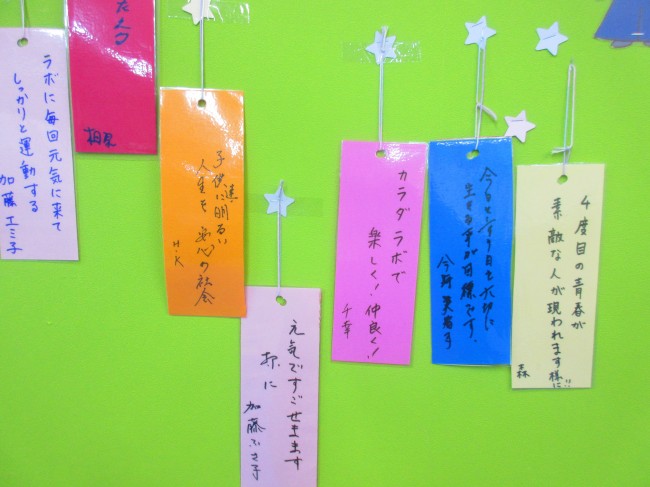 ラボに毎回元気に来て
しっかりと運動する
加藤エミ子
子供達に明るい
人生を 安心の社会
H.K
元気ですごせますます
様に
加藤ふさ子
カラダラボで
楽しく!仲良く!
千幸
今日という日を大切に
生きる事が目標です。
4度目の青春が
素敵な人が現われます様に!!
森